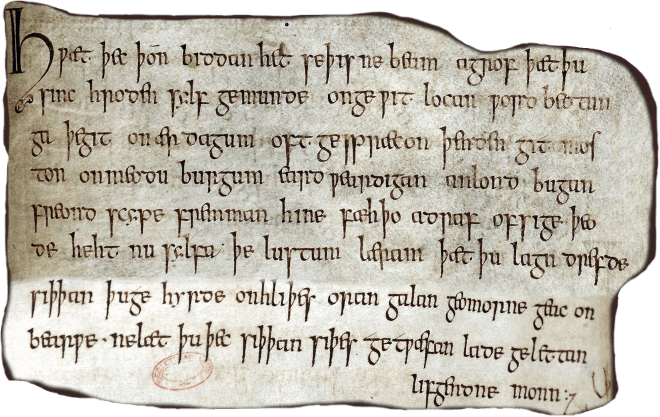 Hƿæt þec þoñ biddan het seþisne beam agrof þæt þu
sinc hroden sylf gemunde ongeƿit locan ƿord beotun
ga þegit on ær dagum oft gespræcon þenden git mos
ton onmeodu burgum eard ƿeardigan anlond bugan
freond scype fremman hine fæhþo adraf ofsige þeo
de heht nu sylfa þe lustum læran þæt þu lagu drefde
siþþan þuge hyrde onhliþes oran galan geomorne geac on
bearƿe · nelæt þu þec siþþan siþes getƿæfan lade gelettan
lifgendne monn :7